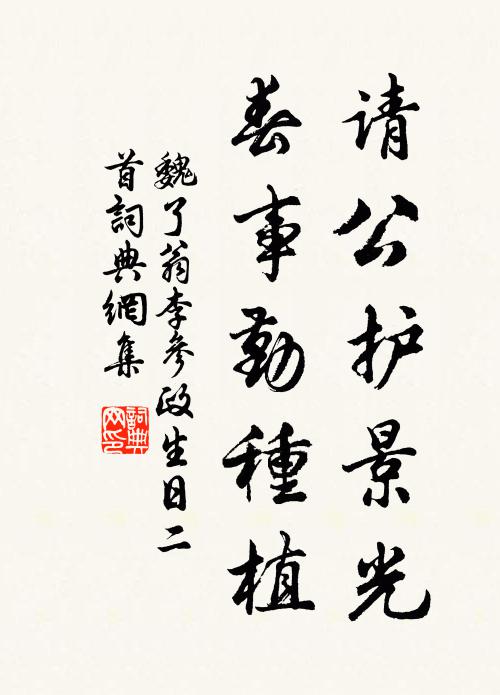 请公护景光
春事勤種植
魏了翁李參政生日二
首詞典網集
詞典
网印